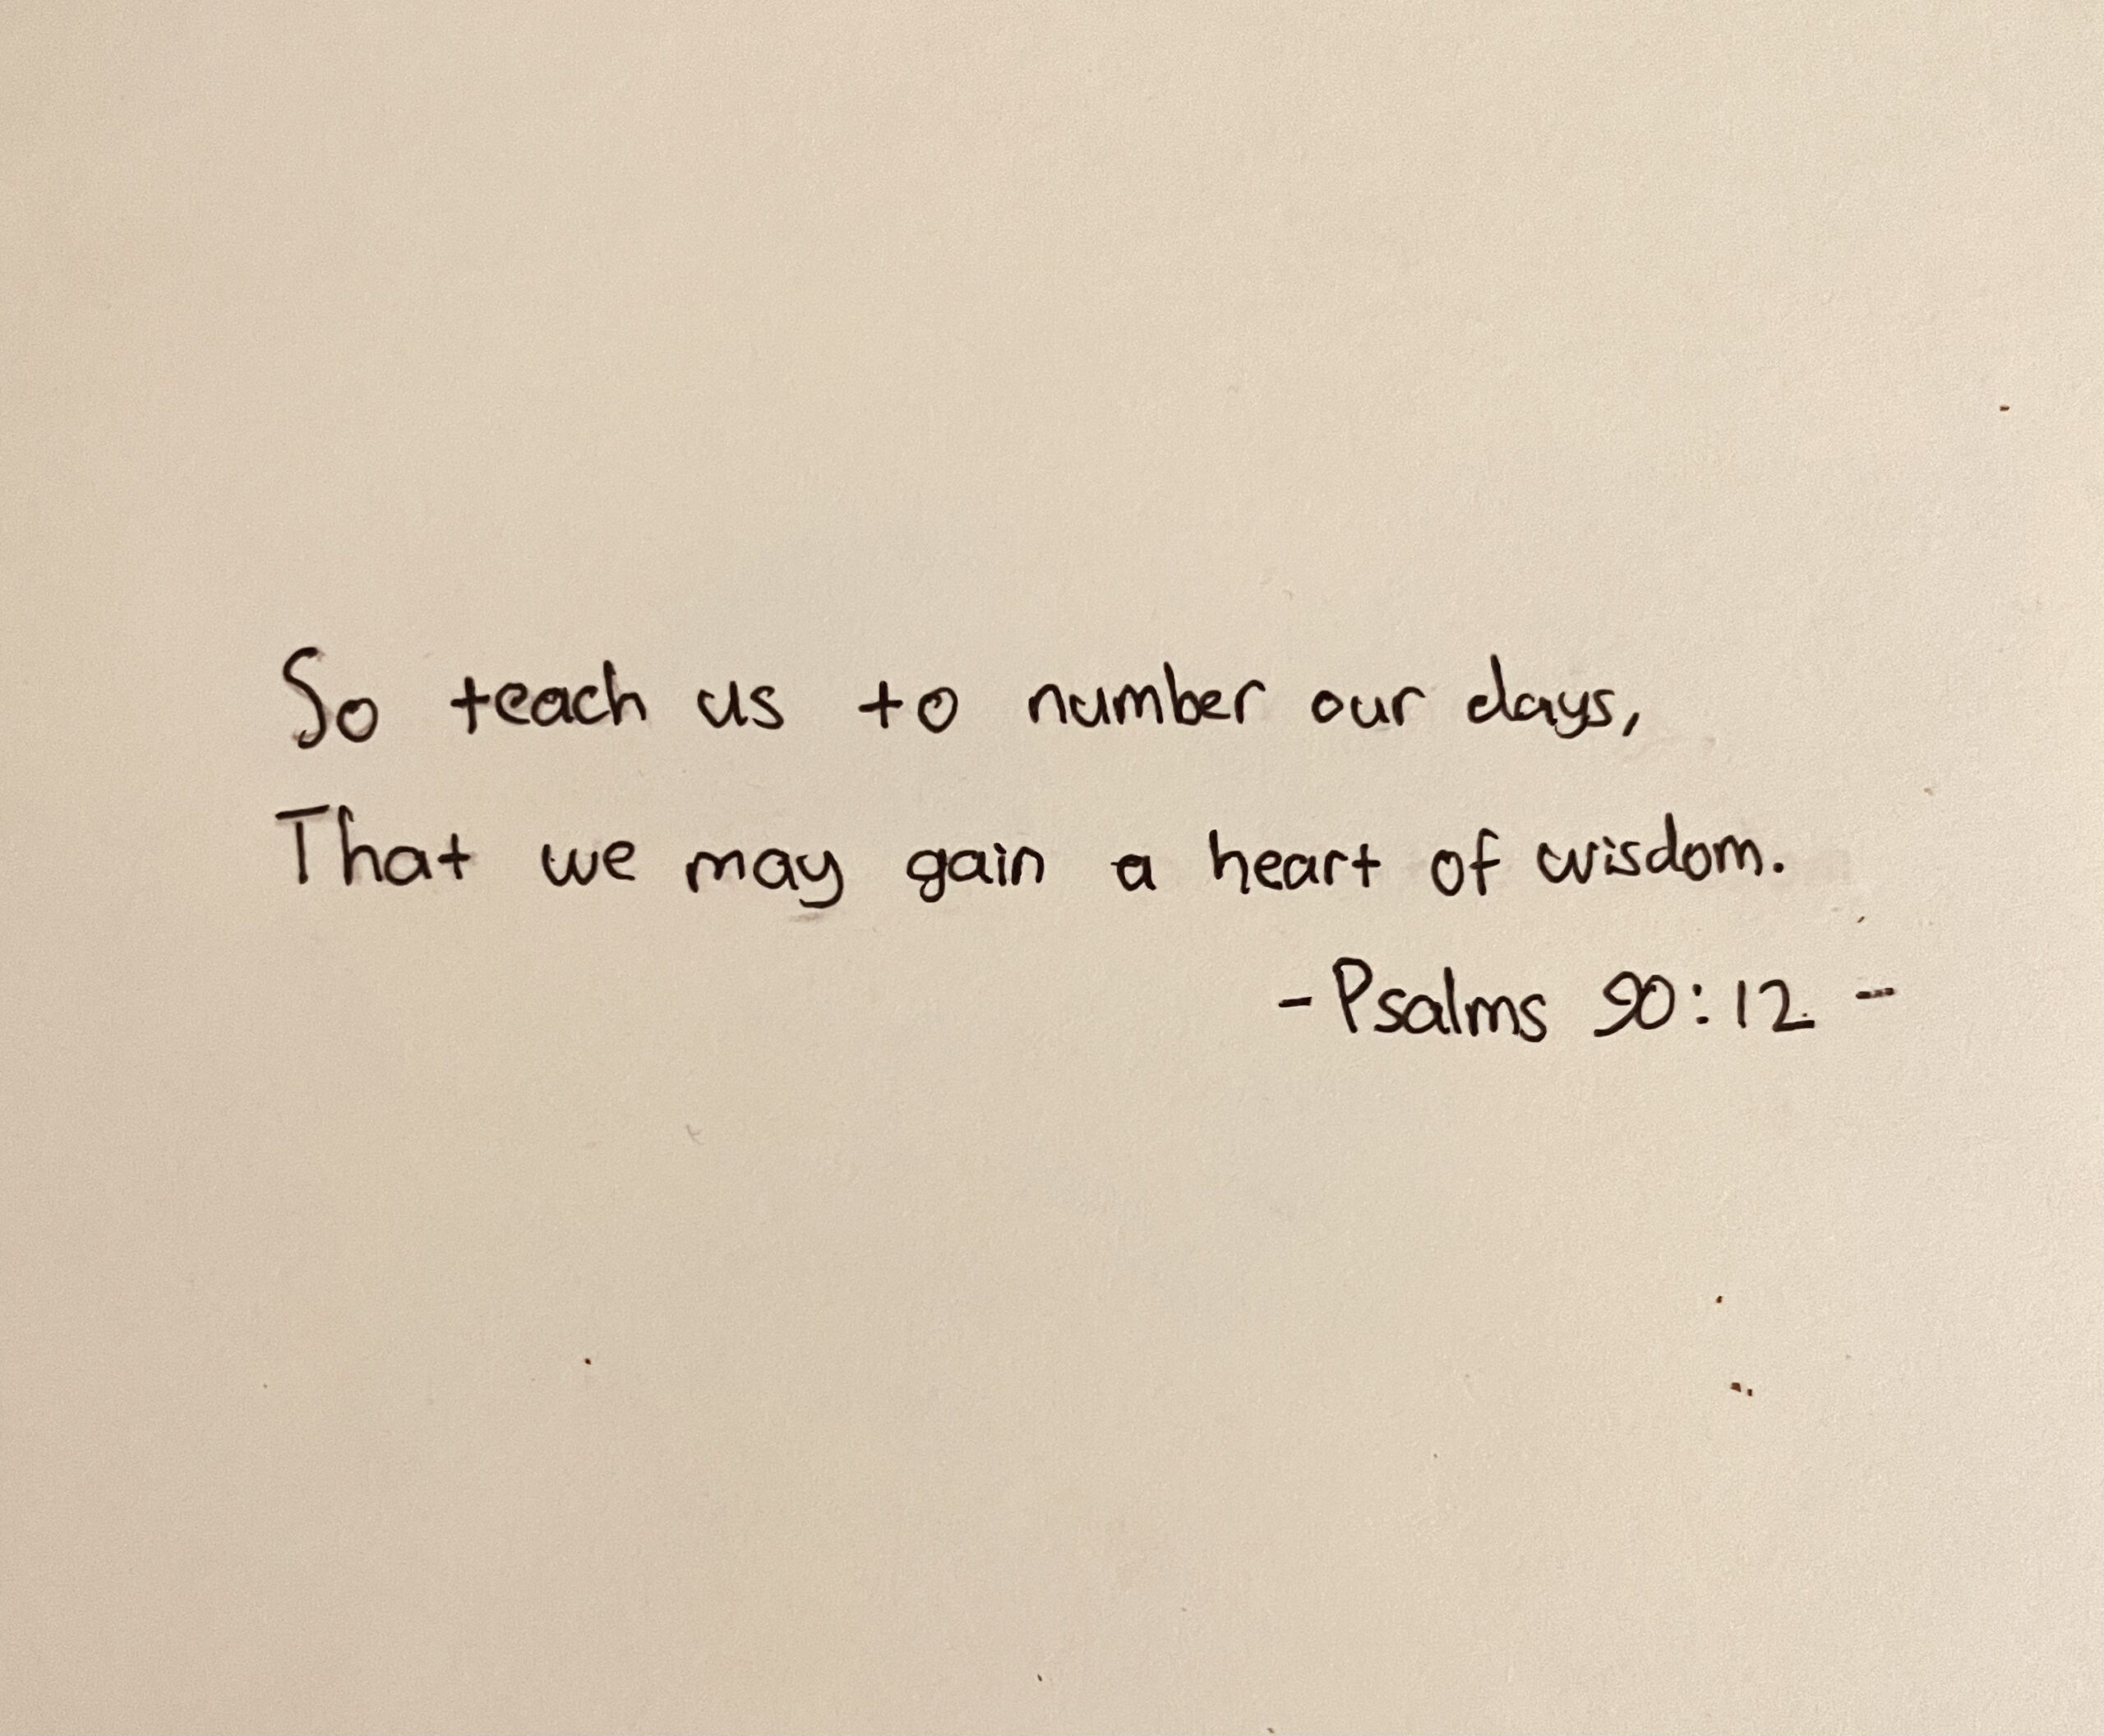 So teach us to number our days,
That we may gain a heart of wisdom.
- Psalms 90:12 -